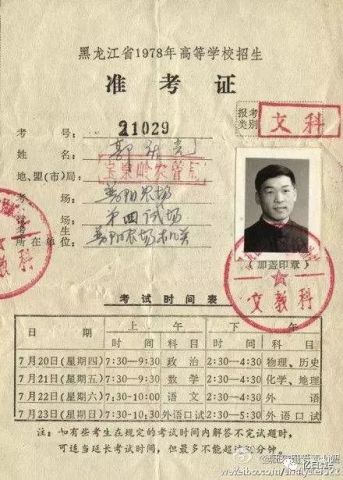 黑龙江省1978年高等学校招生
准考证
报考类别 文科
考号: 21029
姓名: 郭
地、盟(市)局: 宝泉岭农管局
考场: 农场
第四试场
考生所在单位: 农场机关
(加盖印章)
文教科
考试时间表
日期 上午 下午
时间 科目 时间 科目
7月20日(星期四) 7:30—9:30 政治 2:30—4:30 物理、历史
7月21日(星期五) 7:30—9:30 数学 2:30—4:30 化学、地理
7月22日(星期六) 7:30—10:00 语文 2:30—4:30 外语
7月23日(星期日) 7:30—10:30 外语口试 2:30—5:30 外语口试
注:如有些考生在规定的考试时间内解答不完试题时,
可适当延长考试时间,但最多不能超过 分钟。